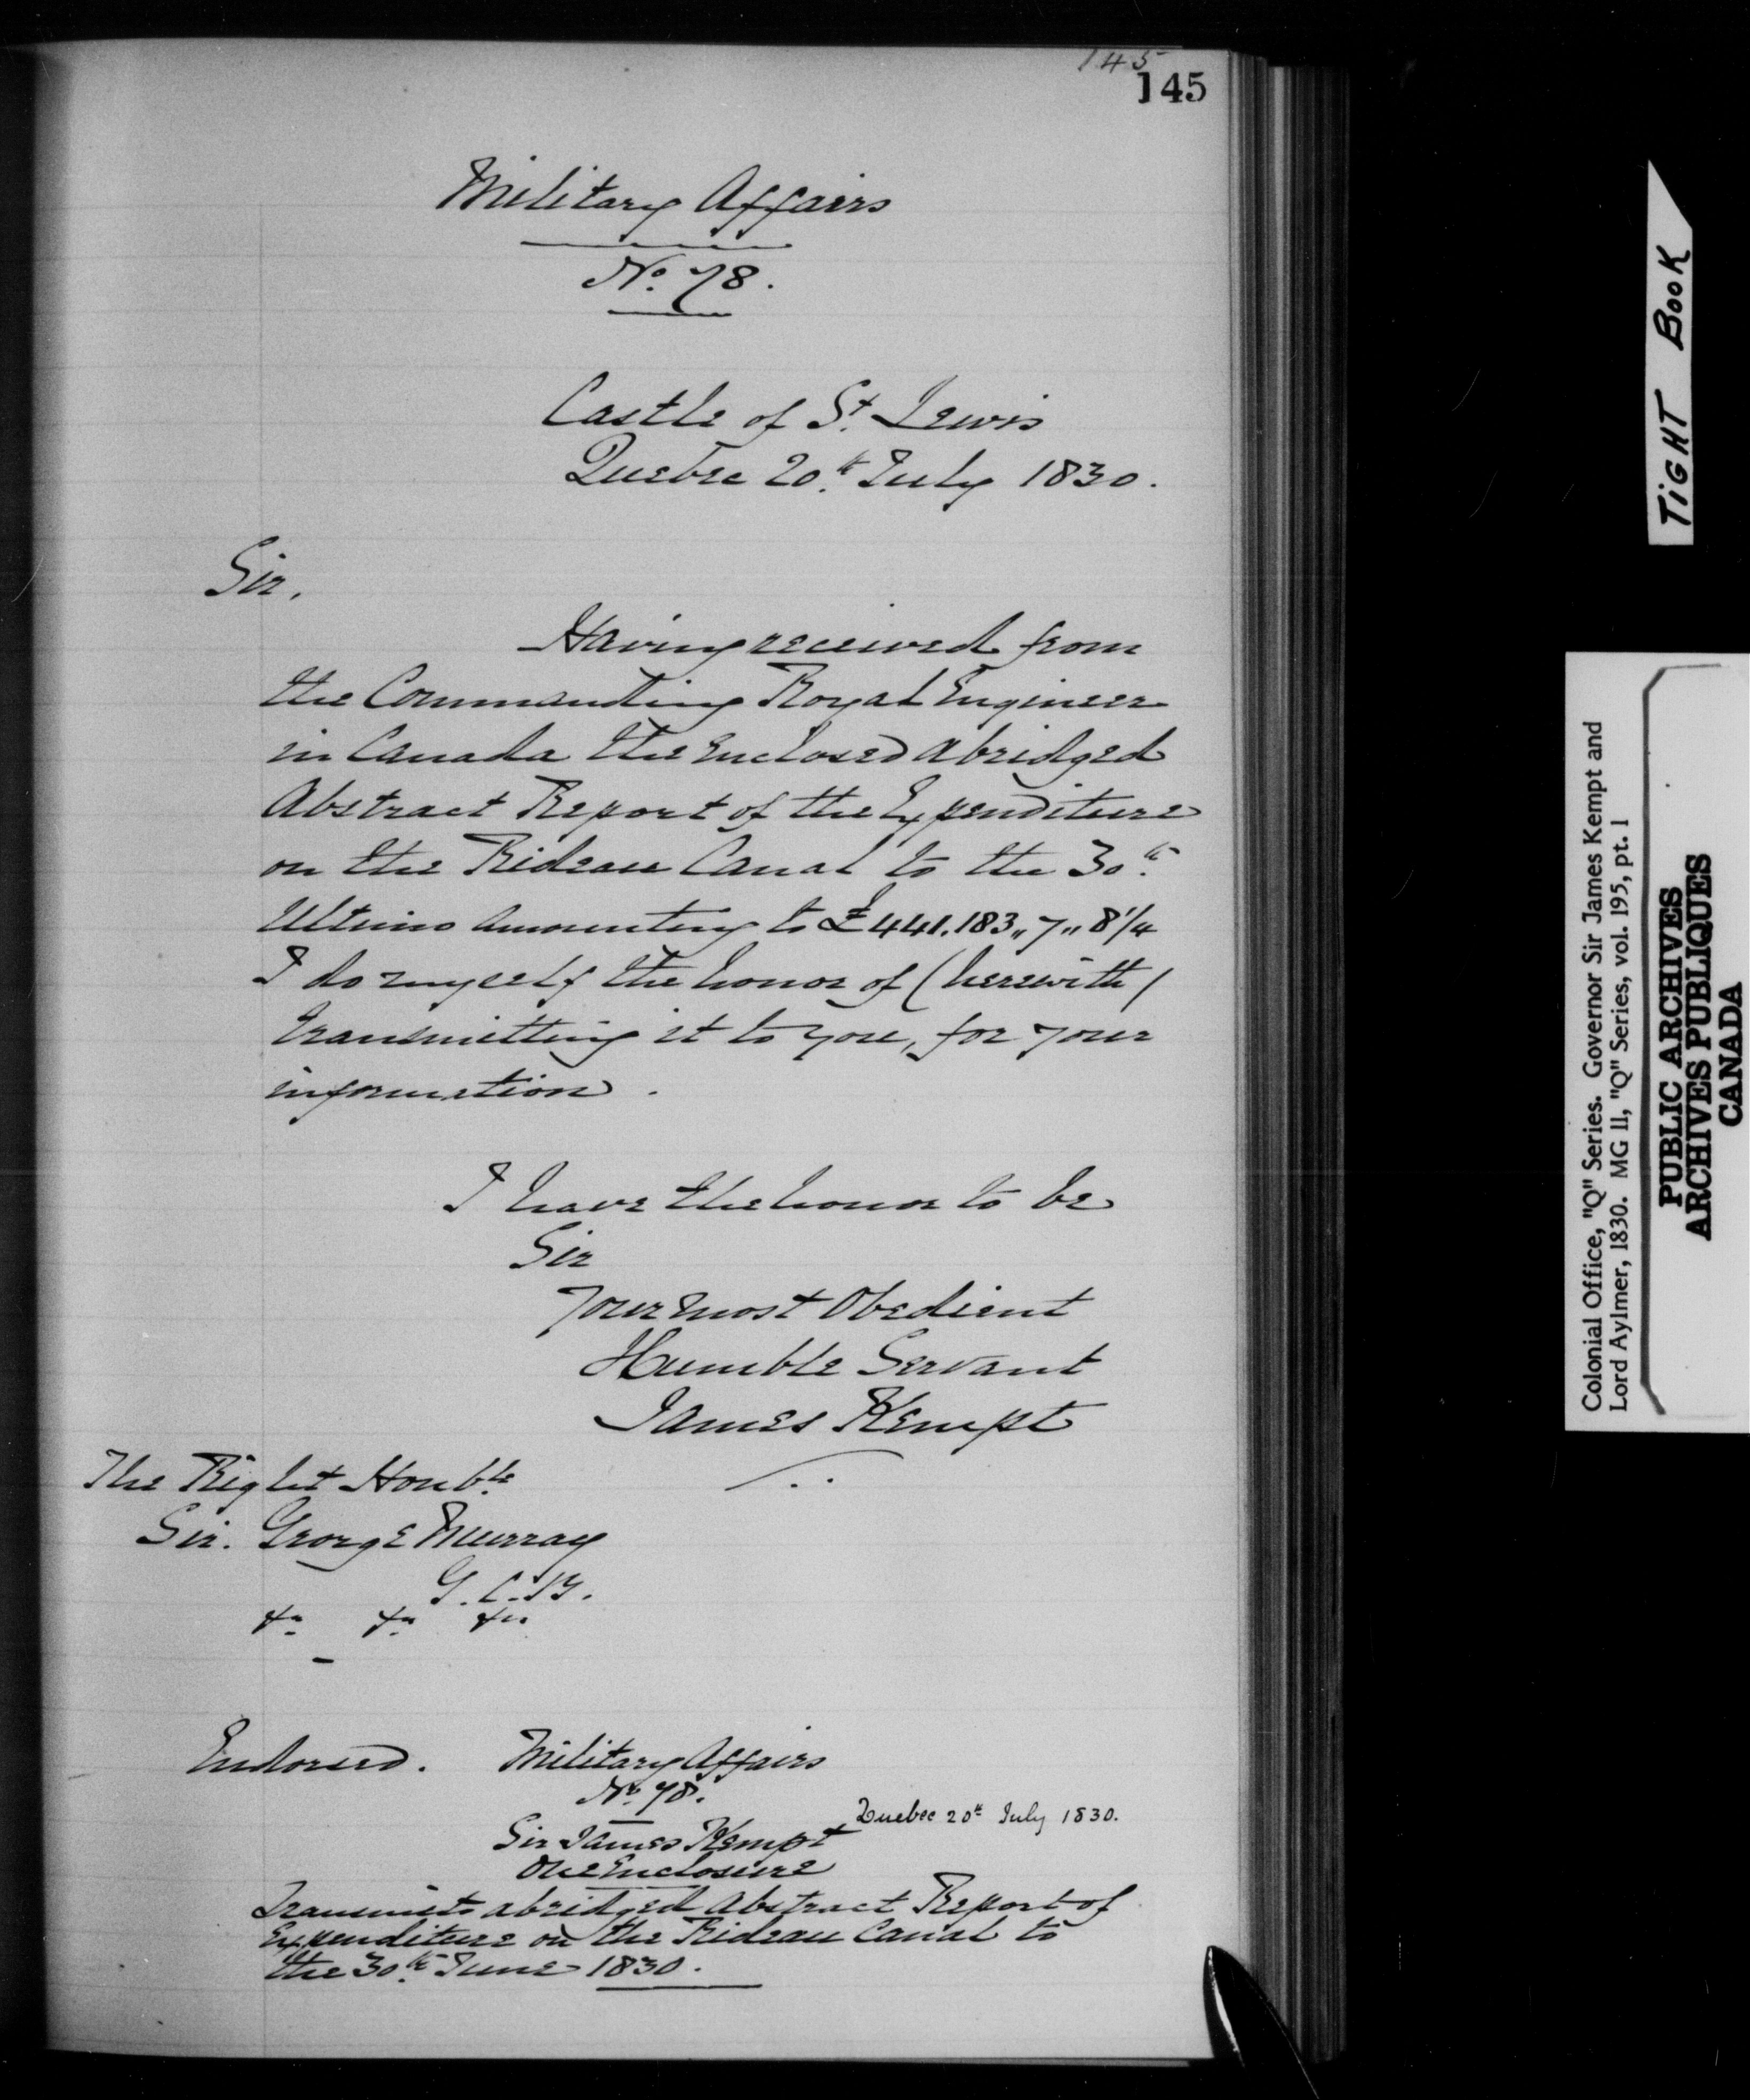 145
145
Military Affairs
No. 78.
Castle of St. Lewis
Quebec 20th July 1830.
Sir,
Having received from
the Commanding Royal Engineer
in Canada the enclosed abridged
Abstract Report of the Expenditure
on the Rideau Canal to the 30th
Ultimo amounting to £441.183,,7,,8 1/4
I do myself the honor of (herewith)
transmitting it to you, for your
information.
I have the honor to be
Sir
Your most Obedient
Humble Servant
James Kempt
The Right Honble
Sir. George Murray
G.C.B.
&c &c &c
Endorsed. Military Affairs
No. 78.
Quebec 20th July 1830.
Sir James Kempt
One Enclosure
Transmits abridged Abstract Report of
Expenditure on the Rideau Canal to
the 30th June 1830.
TIGHT BOOK
Colonial Office, "Q" Series. Governor Sir James Kempt and
Lord Aylmer, 1830. MG 11, "Q" Series, vol. 195, pt. 1
PUBLIC ARCHIVES
ARCHIVES PUBLIQUES
CANADA